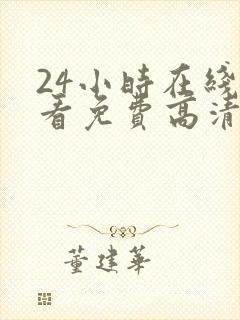 24小時在綫
看免費高清
董建華